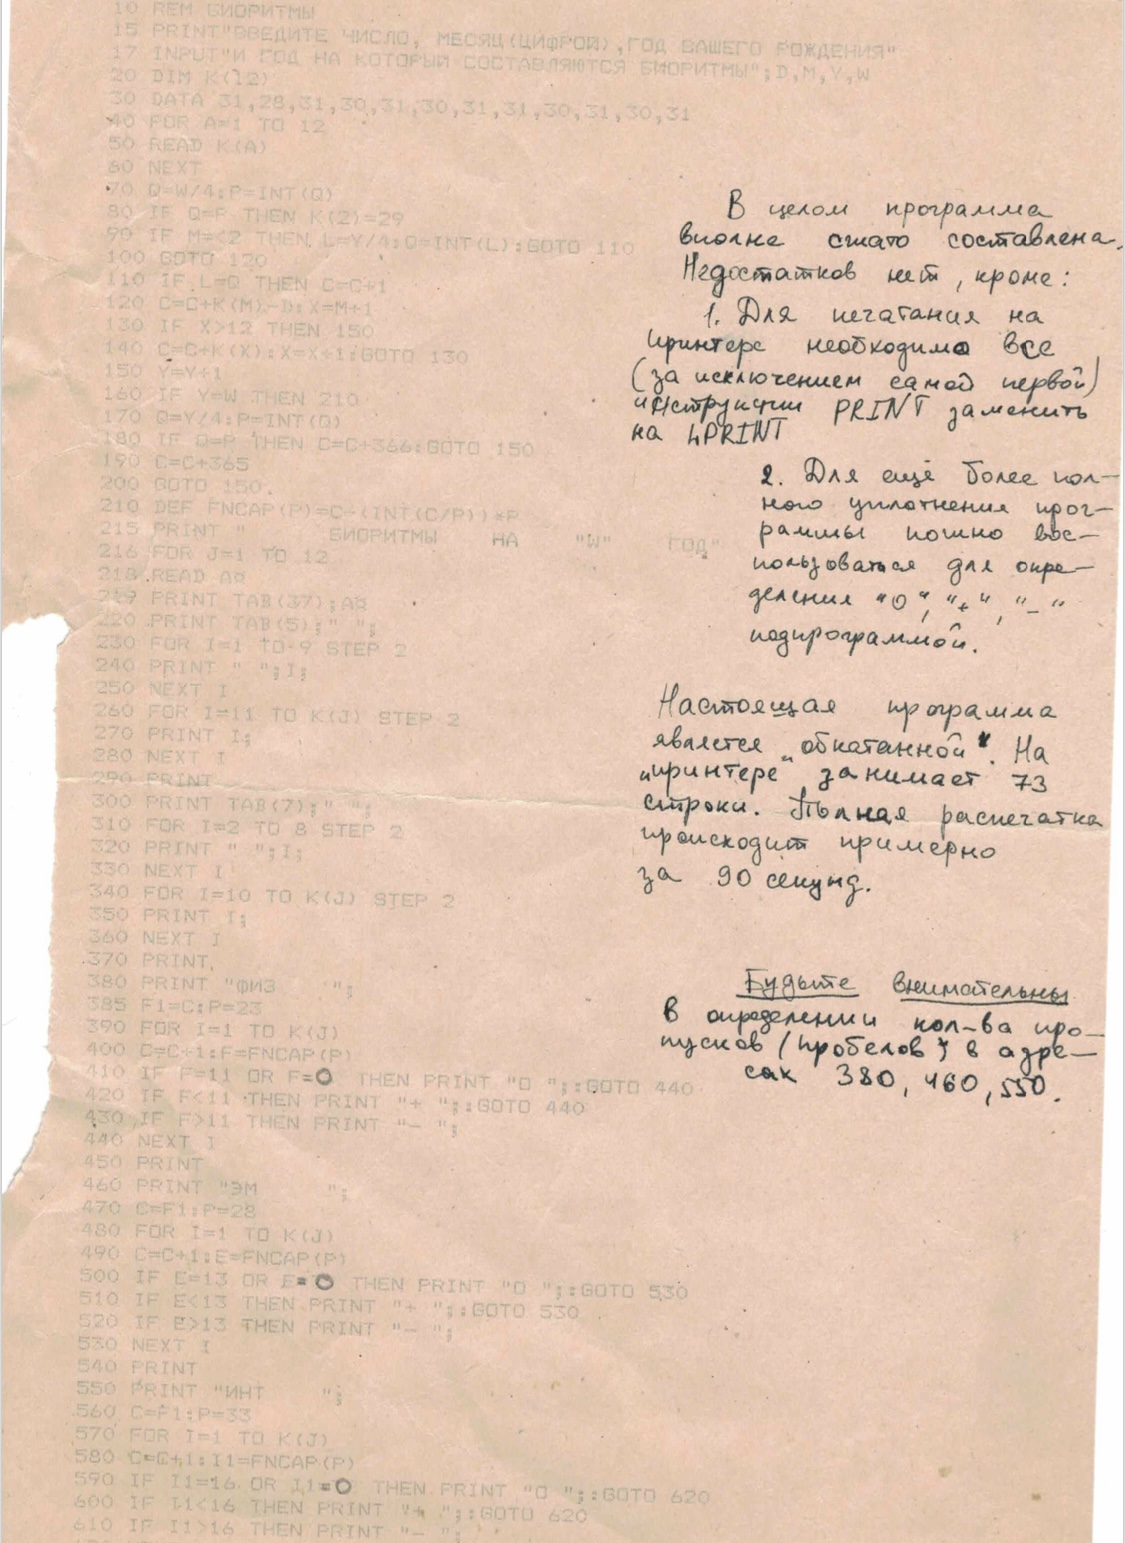 10 REM БИОРИТМЫ
15 PRINT"ВВЕДИТЕ ЧИСЛО, МЕСЯЦ(ЦИФРОЙ),ГОД ВАШЕГО РОЖДЕНИЯ"
17 INPUT"И ГОД НА КОТОРЫЙ СОСТАВЛЯЮТСЯ БИОРИТМЫ";D,M,Y,W
20 DIM K(12)
30 DATA 31,28,31,30,31,30,31,31,30,31,30,31
40 FOR A=1 TO 12
50 READ K(A)
60 NEXT
70 Q=W/4:P=INT(Q)
80 IF Q=P THEN K(2)=29
90 IF M=<2 THEN L=Y/4:O=INT(L):GOTO 110
100 GOTO 120
110 IF L=O THEN C=C+1
120 C=C+K(M)-D:X=M+1
130 IF X>12 THEN 150
140 C=C+K(X):X=X+1:GOTO 130
150 Y=Y+1
160 IF Y=W THEN 210
170 Q=Y/4:P=INT(Q)
180 IF Q=P THEN C=C+366:GOTO 150
190 C=C+365
200 GOTO 150
210 DEF FNCAP(P)=C-(INT(C/P))*P
215 PRINT " БИОРИТМЫ НА "W" ГОД"
216 FOR J=1 TO 12
218 READ A¤
219 PRINT TAB(37);A¤
220 PRINT TAB(5);" ";
230 FOR I=1 TO 9 STEP 2
240 PRINT " ";I;
250 NEXT I
260 FOR I=11 TO K(J) STEP 2
270 PRINT I;
280 NEXT I
290 PRINT
300 PRINT TAB(7);" ";
310 FOR I=2 TO 8 STEP 2
320 PRINT " ";I;
330 NEXT I
340 FOR I=10 TO K(J) STEP 2
350 PRINT I;
360 NEXT I
370 PRINT
380 PRINT "ФИЗ ";
385 F1=C:P=23
390 FOR I=1 TO K(J)
400 C=C+1:F=FNCAP(P)
410 IF F=11 OR F=0 THEN PRINT "O ";:GOTO 440
420 IF F<11 THEN PRINT "+ ";:GOTO 440
430 IF F>11 THEN PRINT "- ";
440 NEXT I
450 PRINT
460 PRINT "ЭМ ";
470 C=F1:P=28
480 FOR I=1 TO K(J)
490 C=C+1:E=FNCAP(P)
500 IF E=13 OR E=0 THEN PRINT "O ";:GOTO 530
510 IF E<13 THEN PRINT "+ ";:GOTO 530
520 IF E>13 THEN PRINT "- ";
530 NEXT I
540 PRINT
550 PRINT "ИНТ ";
560 C=F1:P=33
570 FOR I=1 TO K(J)
580 C=C+1:I1=FNCAP(P)
590 IF I1=16 OR I1=0 THEN PRINT "O ";:GOTO 620
600 IF I1<16 THEN PRINT "+ ";:GOTO 620
610 IF I1>16 THEN PRINT "- ";
В целом программа
вполне сжато составлена.
Недостатков нет, кроме:
1. Для печатания на
принтере необходимо все
(за исключением самой первой)
инструкции PRINT заменить
на LPRINT
2. Для ещё более пол-
ного уплотнения прог-
раммы можно вос-
пользоваться для опре-
деления "0", "+", "-"
подпрограммой.
Настоящая программа
является "обкатанной". На
"принтере" занимает 73
строки. Полная распечатка
происходит примерно
за 90 секунд.
Будьте внимательны
в определении кол-ва про-
пусков (пробелов) в адре-
сах 380, 460, 550.